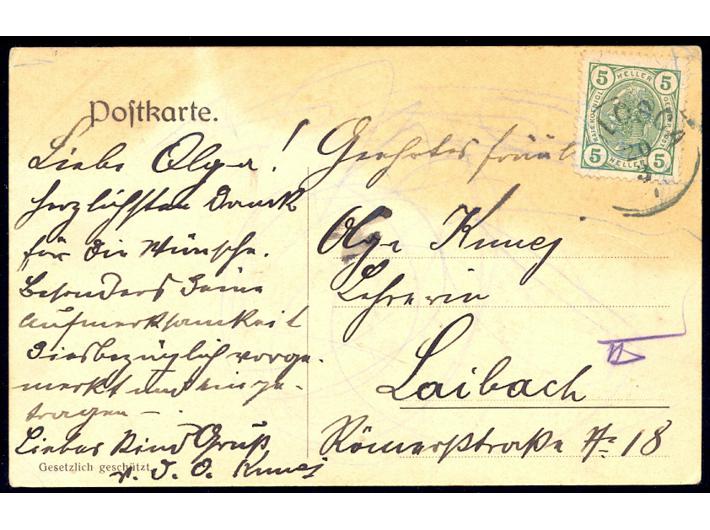 Postkarte.
Liebe Olga!
herzlichsten Dank
für die Wünsche.
Besonders Deine
Aufmerksamkeit
diesbezüglich vorge-
merkt und einge-
tragen –.
Liebes Kind Gruß
v. J. O. Kunej
Gesetzlich geschützt.
Geehrtes Fräul
Olga Kunej
Lehrerin
Laibach
Römerstraße No 18
5 HELLER 5
5 HELLER 5
20
3